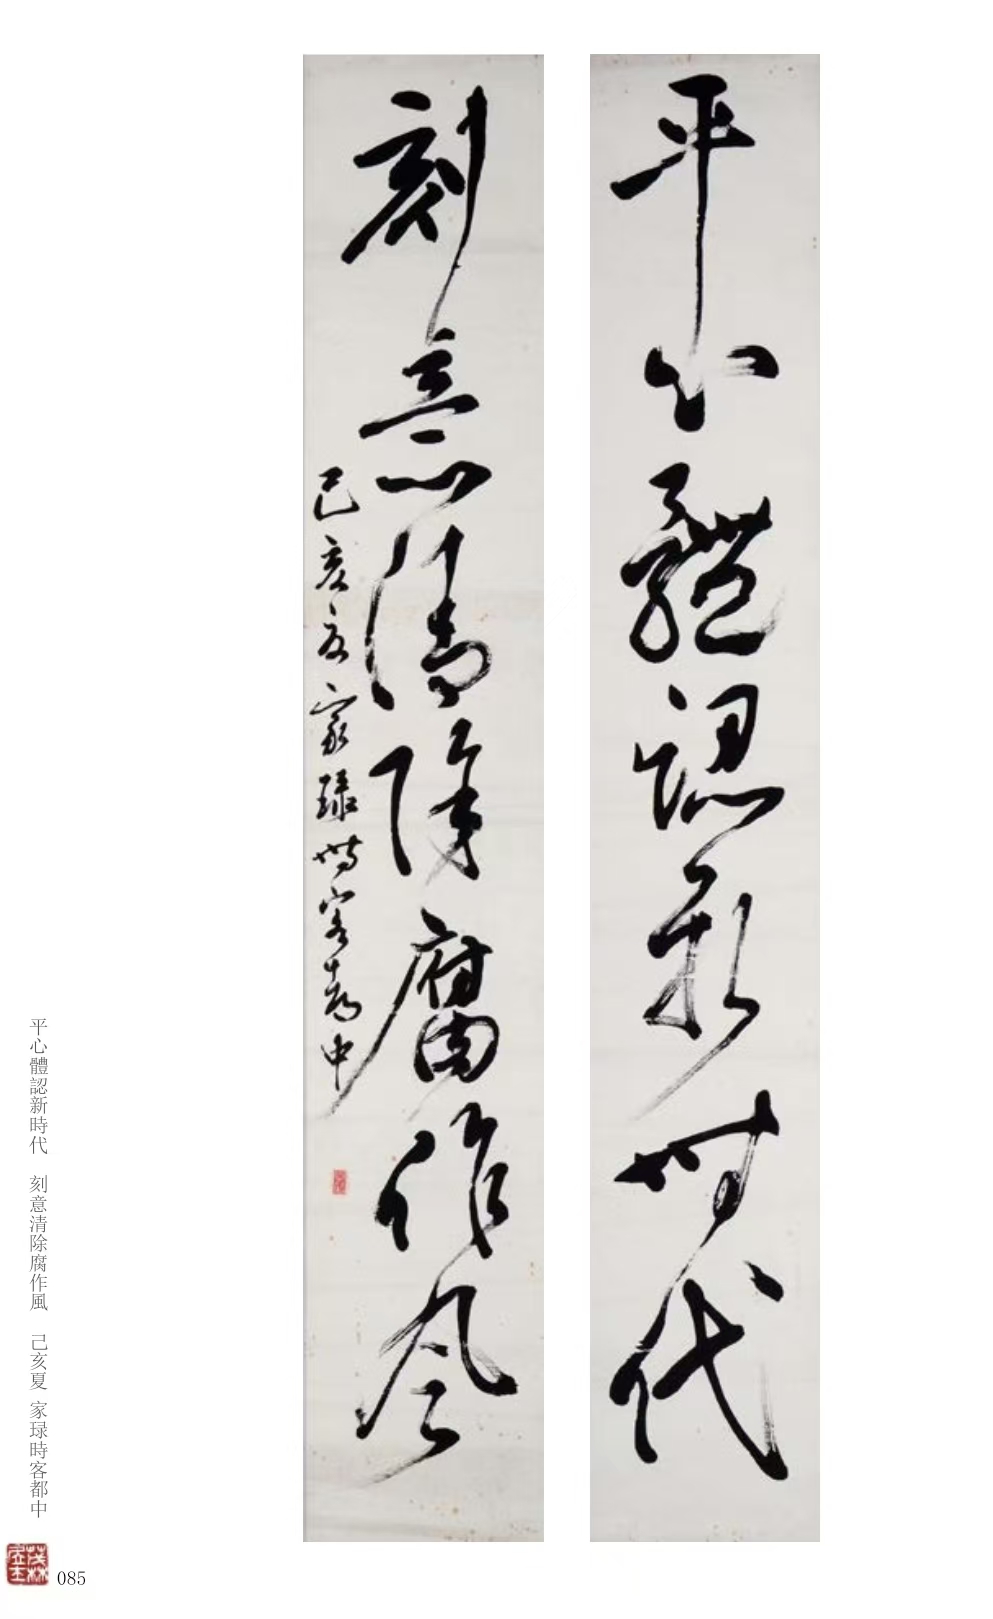 平心體認新時代
刻意清除腐作風
己亥夏家琭時客都中
平心體認新時代 刻意清除腐作風 己亥夏 家琭時客都中
085